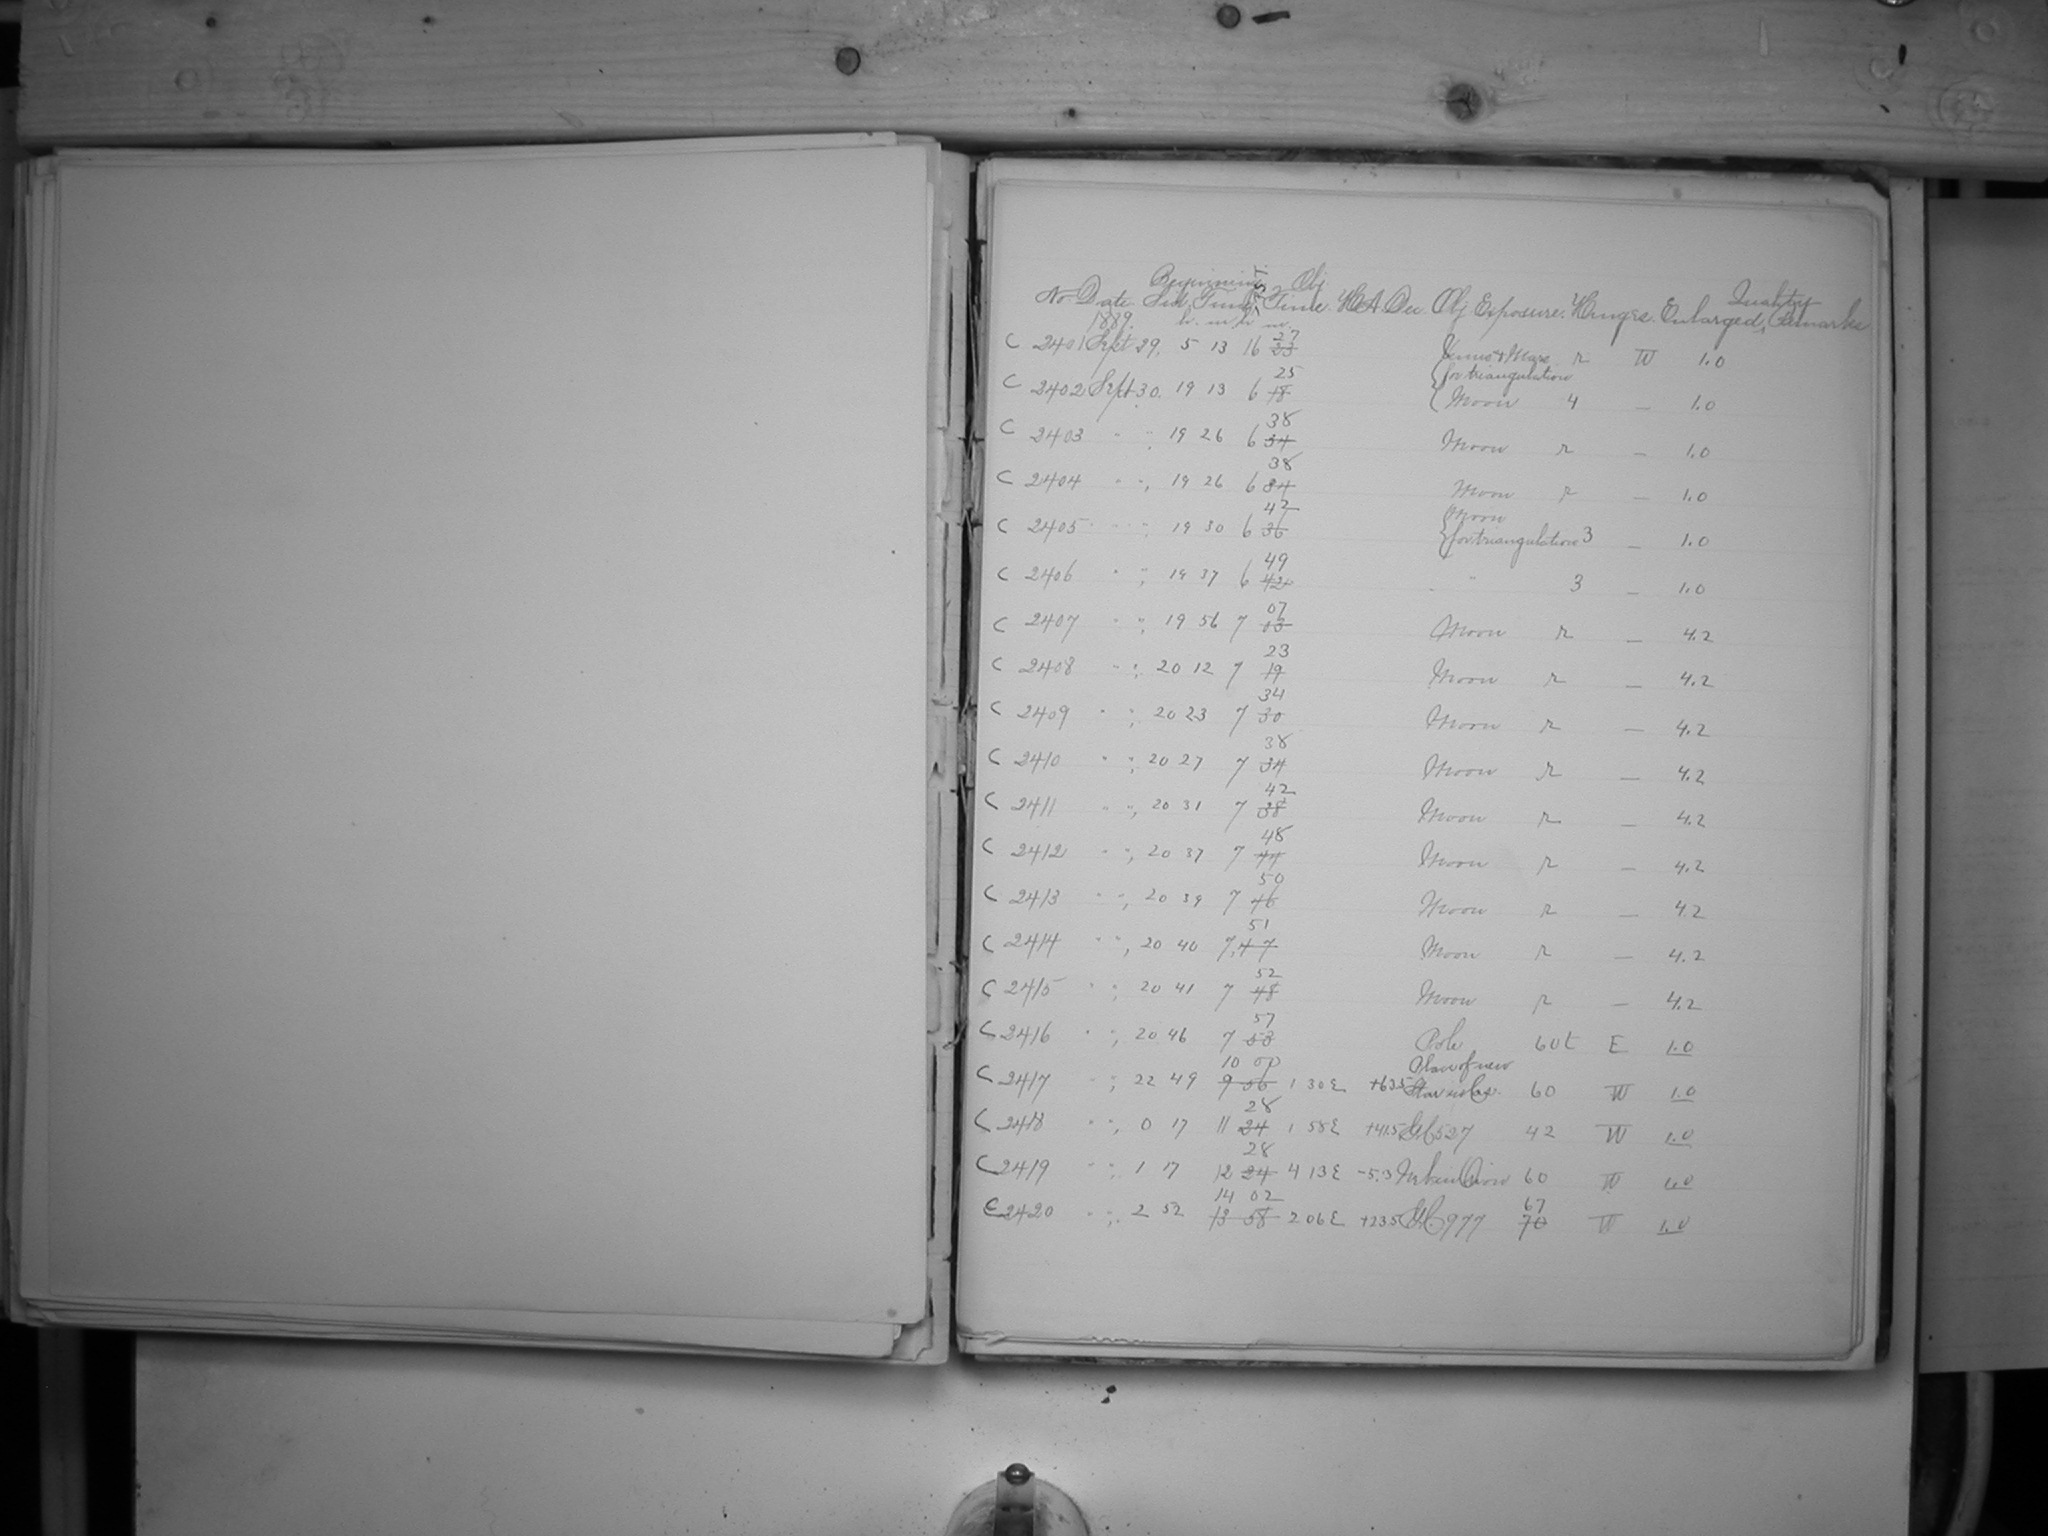 Beginning P.S.T. Obj Quality
No. Date Sid. Time Time. H.A. Dec. Obj Exposure. Hinges. Enlarged, Remarks
1889. h. m h m.
27
C 2401 Sept 29, 5 13 16 23 Venus & Mars r W 1.0
25 for triangulation
C 2402 Sept 30. 19 13 6 18 Moon 4 — 1.0
38
C 2403 " " 19 26 6 34 Moon r — 1.0
38
C 2404 " " 19 26 6 34 Moon r — 1.0
42 Moon
C 2405 " " 19 30 6 36 for triangulation 3 — 1.0
49
C 2406 " " 19 37 6 42 " " 3 — 1.0
07
C 2407 " " 19 56 7 03 Moon r — 4.2
23
C 2408 " " 20 12 7 19 Moon r — 4.2
34
C 2409 " " 20 23 7 30 Moon r — 4.2
38
C 2410 " " 20 27 7 34 Moon r — 4.2
42
C 2411 " " 20 31 7 38 Moon r — 4.2
48
C 2412 " " 20 37 7 44 Moon r — 4.2
50
C 2413 " " 20 39 7 46 Moon r — 4.2
51
C 2414 " " 20 40 7 47 Moon r — 4.2
52
C 2415 " " 20 41 7 48 Moon r — 4.2
57
C 2416 " " 20 46 7 53 Pole 60t E 1.0
10 00 Place of new
C 2417 " " 22 49 9 56 1 30 E +63.5 Star in Cas. 60 W 1.0
28
C 2418 " " 0 17 11 24 1 58 E +41.5 G.C. 527 42 W 1.0
28
C 2419 " " 1 17 12 24 4 13 E -5.3 Neb in Orion 60 W 1.0
14 02 67
C 2420 " " 2 52 13 58 2 06 E +23.5 G.C. 977 70 W 1.0